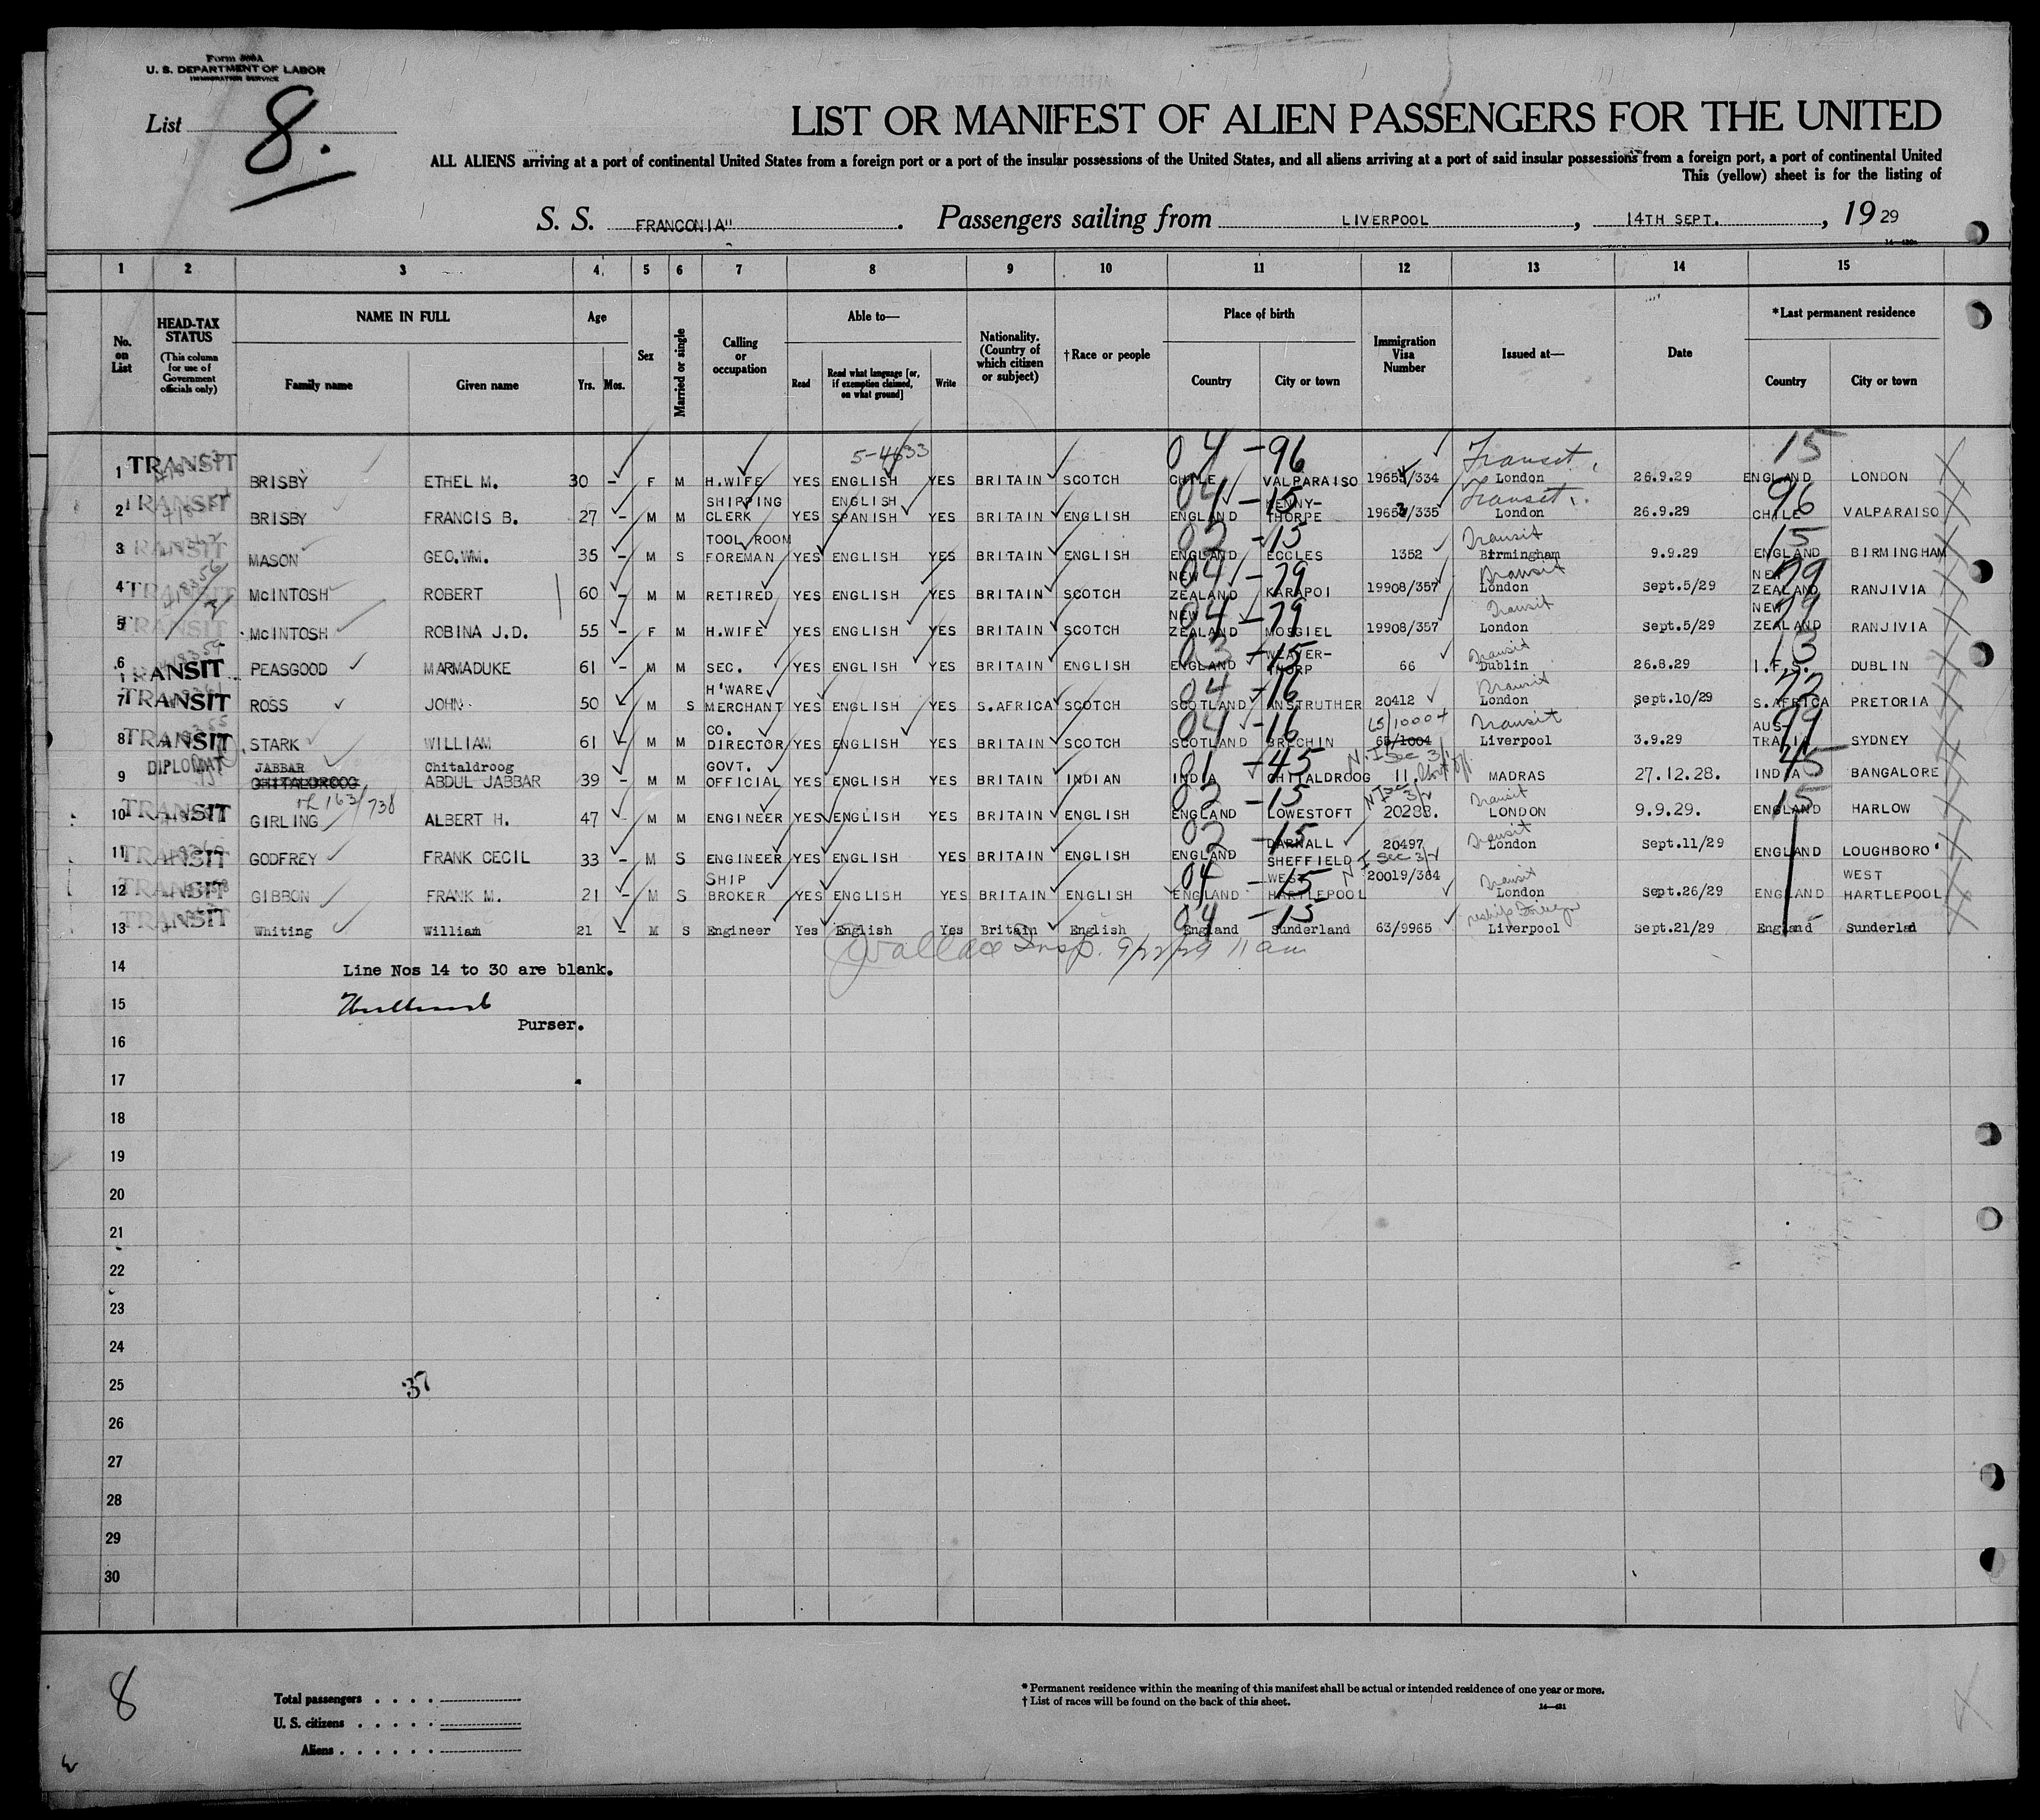 Form 500A
U. S. DEPARTMENT OF LABOR
IMMIGRATION SERVICE
List 8.
LIST OR MANIFEST OF ALIEN PASSENGERS FOR THE UNITED
ALL ALIENS arriving at a port of continental United States from a foreign port or a port of the insular possessions of the United States, and all aliens arriving at a port of said insular possessions from a foreign port, a port of continental United
This (yellow) sheet is for the listing of
S. S. FRANCONIA" . Passengers sailing from LIVERPOOL , 14TH SEPT. , 19 29
1 2 3 4 5 6 7 8 9 10 11 12 13 14 15
No. on List
HEAD-TAX STATUS
(This column for use of Government officials only)
NAME IN FULL
Family name Given name
Age
Yrs. Mos.
Sex
Married or single
Calling or occupation
Able to—
Read
Read what language [or, if exemption claimed, on what ground]
Write
Nationality. (Country of which citizen or subject)
†Race or people
Place of birth
Country City or town
Immigration Visa Number
Issued at—
Date
*Last permanent residence
Country City or town
5-4633 04 - 96 Transit 15
1 TRANSIT BRISBY ETHEL M. 30 - F M H.WIFE YES ENGLISH YES BRITAIN SCOTCH CHILE VALPARAISO /334 London 26.9.29 ENGLAND LONDON
04 - 15 Transit 96
2 TRANSIT BRISBY FRANCIS B. 27 - M M SHIPPING CLERK YES ENGLISH SPANISH YES BRITAIN ENGLISH ENGLAND KENNY-THORPE /335 London 26.9.29 CHILE VALPARAISO
02 - 15 Transit 15
3 TRANSIT MASON GEO.WM. 35 - M S TOOL ROOM FOREMAN YES ENGLISH YES BRITAIN ENGLISH ENGLAND ECCLES 1352 Birmingham 9.9.29 ENGLAND BIRMINGHAM
04 - 79 Transit 79
4 TRANSIT McINTOSH ROBERT 60 - M M RETIRED YES ENGLISH YES BRITAIN SCOTCH NEW ZEALAND KARAPOI 19908/357 London Sept.5/29 NEW ZEALAND RANJIVIA
04 - 79 Transit 79
5 TRANSIT McINTOSH ROBINA J.D. 55 - F M H.WIFE YES ENGLISH YES BRITAIN SCOTCH NEW ZEALAND MOSGIEL 19908/357 London Sept.5/29 NEW ZEALAND RANJIVIA
03 - 15 Transit 13
6 TRANSIT PEASGOOD MARMADUKE 61 - M M SEC. YES ENGLISH YES BRITAIN ENGLISH ENGLAND WEAVER-THORP 66 Dublin 26.8.29 I.F.S. DUBLIN
04 - 16 Transit 72
7 TRANSIT ROSS JOHN 50 M S H'WARE MERCHANT YES ENGLISH YES S.AFRICA SCOTCH SCOTLAND ANSTRUTHER 20412 London Sept.10/29 S.AFRICA PRETORIA
04 - 16 65/1000 Transit
8 TRANSIT STARK WILLIAM 61 - M M CO. DIRECTOR YES ENGLISH YES BRITAIN SCOTCH SCOTLAND BRECHIN 65/1004 Liverpool 3.9.29 SYDNEY
DIPLOMAT JABBAR Chitaldroog 01 - 45 45
9 CHITALDROOG ABDUL JABBAR 39 - M M GOVT. OFFICIAL YES ENGLISH YES BRITAIN INDIAN INDIA CHITALDROOG 11. MADRAS 27.12.28. INDIA BANGALORE
163/738 02 - 15 Transit 15
10 TRANSIT GIRLING ALBERT H. 47 - M M ENGINEER YES ENGLISH YES BRITAIN ENGLISH ENGLAND LOWESTOFT 20288. LONDON 9.9.29. ENGLAND HARLOW
02 - 15 Transit
11 TRANSIT GODFREY FRANK CECIL 33 - M S ENGINEER YES ENGLISH YES BRITAIN ENGLISH ENGLAND DARNALL SHEFFIELD 20497 London Sept.11/29 ENGLAND LOUGHBORO'
04 - 15 Transit
12 TRANSIT GIBBON FRANK M. 21 - M S SHIP BROKER YES ENGLISH YES BRITAIN ENGLISH ENGLAND WEST HARTLEPOOL 20019/384 London Sept.26/29 ENGLAND WEST HARTLEPOOL
04 - 15
13 TRANSIT Whiting William 21 - M S Engineer Yes English Yes Britain English England Sunderland 63/9965 Liverpool Sept.21/29 England Sunderlad
Wallace Insp. 9/22/29 11 am
14 Line Nos 14 to 30 are blank.
15
Purser.
16
17
18
19
20
21
22
23
24
25 37
26
27
28
29
30
8
Total passengers . . . .
U. S. citizens . . . . .
Aliens . . . . . .
* Permanent residence within the meaning of this manifest shall be actual or intended residence of one year or more.
† List of races will be found on the back of this sheet.